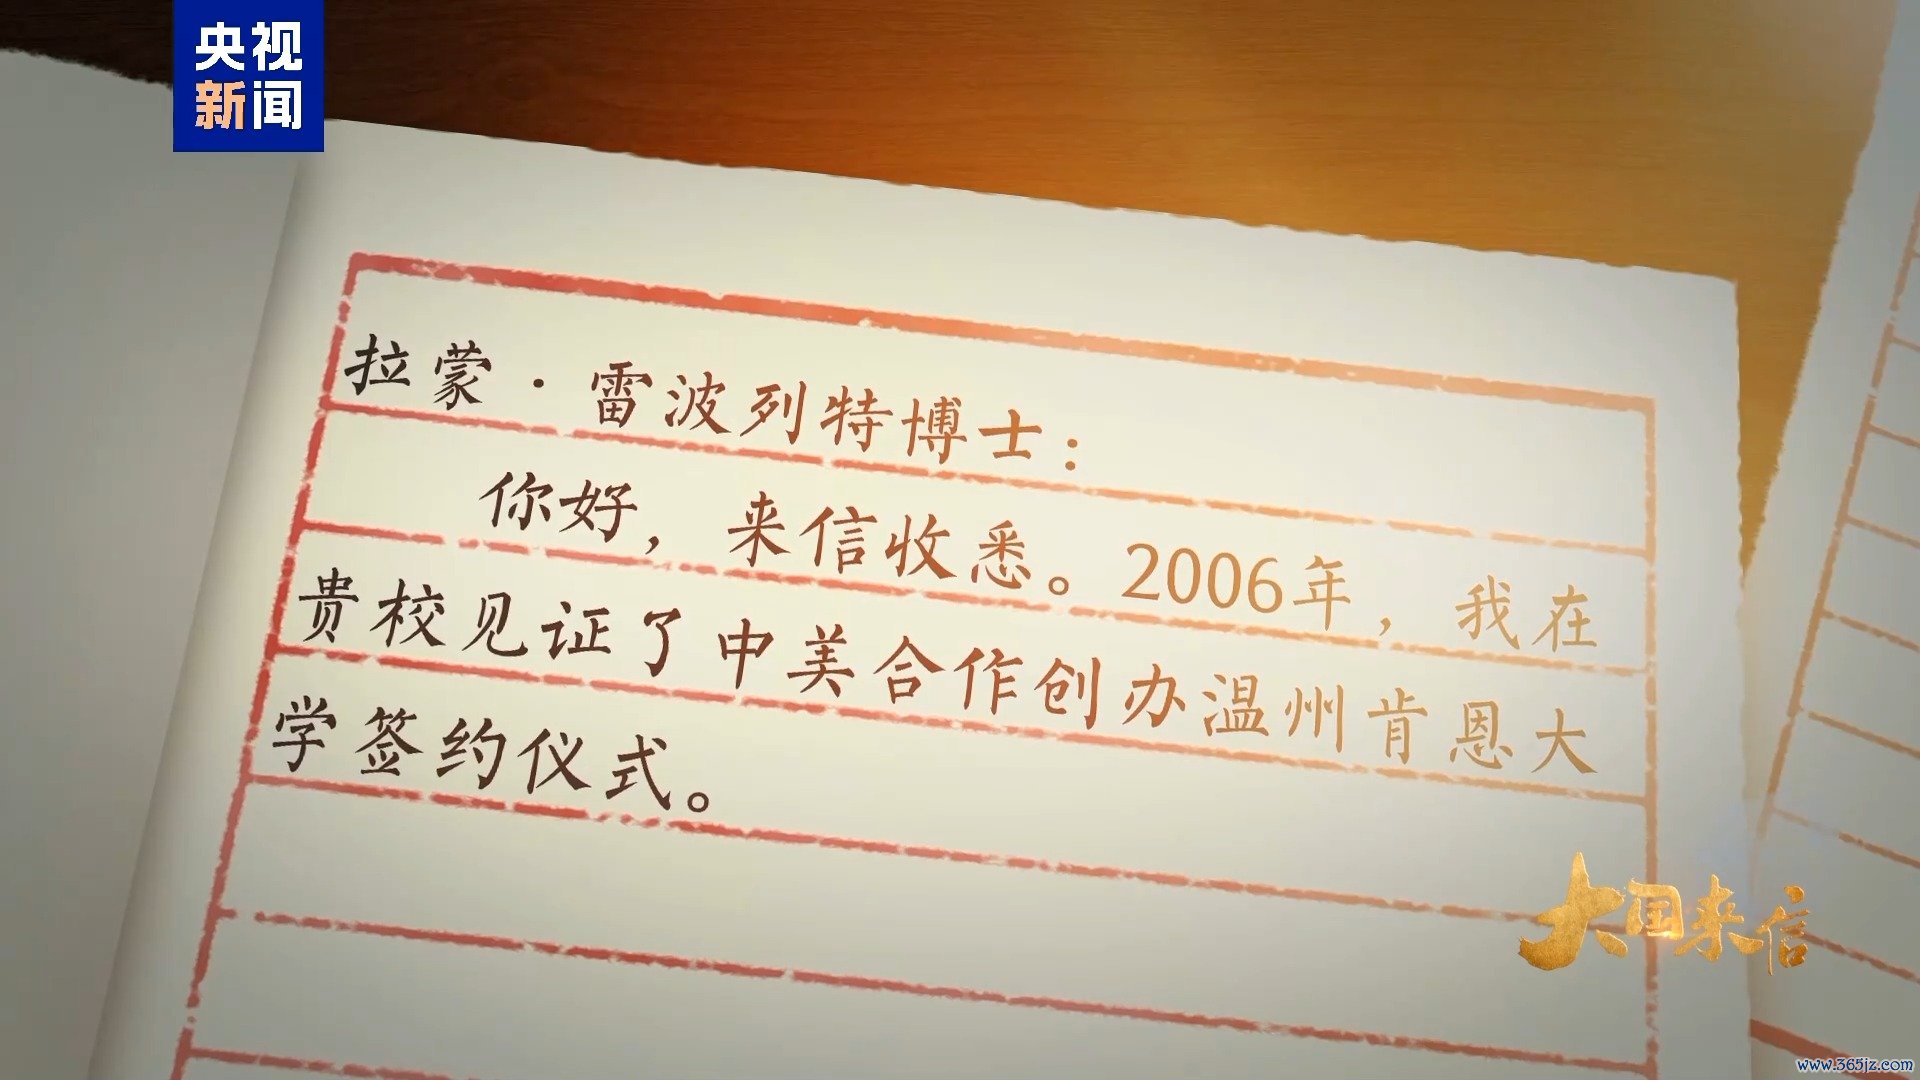 央视
新闻
拉蒙·雷波列特博士：
你好，来信收悉。2006年，我在
贵校见证了中美合作创办温州肯恩大
学签约仪式。
大国来信
www.365jz.com